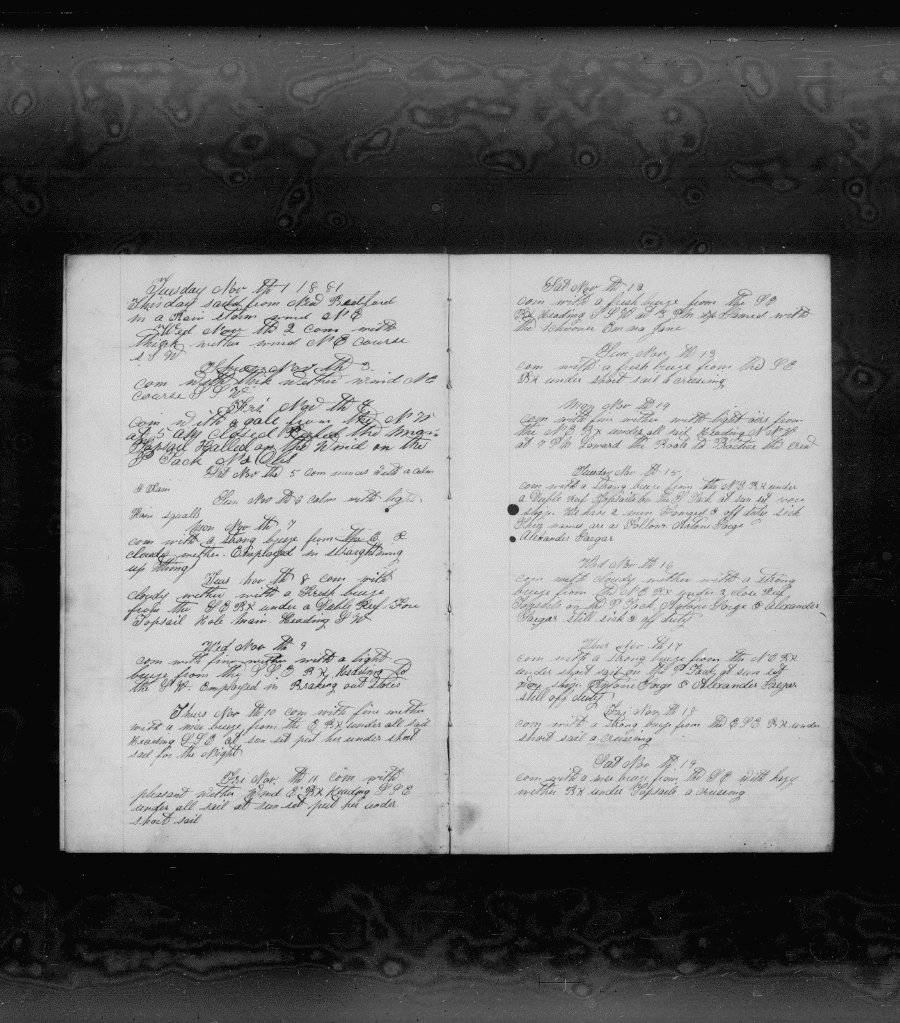 Tuesday Nov th 1 1881
This day saild from New Bedford
in a Rain storm wind N E
Wed Nov th 2 com with
thick wether wind N E course
S S W
Thurs Nov th 3
com with thick wether wind N E
course S S W
Fri Nov th 4
com with a gale from the N W
at 5 AM closed Reefed the main
Topsail Halled on the Wind on the
P Tack
Sat Nov the 5 Com mences with a calm
& Rain
Sun Nov th 6 calm with light
Rain squalls
Mon Nov th 7
com with a strong breeze from the E &
cloudy wether. Employed in straightning
up things
Tues nov th 8 com with
cloudy wether with a Fresh breeze
from the S E Bx under a Duble Reef Fore
Topsail Hole Main Heading S W
Wed Nov th 9
com with fine wether with a light
breeze from the S S E Bx Heading to
the S W. Employed in Braking out Stores
Thurs Nov th 10 com with fine wether
with a nice breeze from the E Bx under all sail
Heading S S E at sun set put her under short
sail for the Night
Fri Nov th 11 com with
pleasant wether Wind E Bx Heading S S E
under all sail at sun set put her under
short sail
Sat Nov th 12
com with a fresh breeze from the S E
Bx Heading S S W at PM Speared with
the Schooner Emma Jane
Sun Nov th 13
com with a fresh breeze from the S E
Bx under short sail a cruseing
Mon Nov th 14
com with fine wether with light airs from
the N E Bx under all sail Heading N N W
at 2 PM Lowerd the Boats to Practice the Crew
Tuesday Nov th 15
com with a strong breeze from the N E Bx under
a Duble Reef Topsails on the P Tack at sun set wore
ship. We have 2 men Forward & off duty sick
They names are as Follows Antone Jorge
Alexander Gaspar
Wed Nov th 16
com with cloudy wether with a strong
breeze from the N E Bx under 2 close Reef
Topsails on the P Tack. Antone Jorge & Alexander
Gaspar still sick & off duty
Thur Nov th 17
com with a strong breeze from the N E Bx
under short sail on the P Tack at sun set
wore ship. Antone Jorge & Alexander Gaspar
still off duty
Fri Nov th 18
com with a strong breeze from the E S E Bx under
short sail a cruseing
Sat Nov th 19
com with a nice breeze from the S E with hazy
wether Bx under Topsails a cruseing